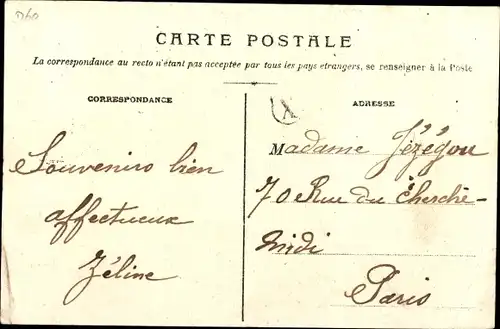 5260
CARTE POSTALE
La correspondance au recto n'étant pas acceptée par tous les pays étrangers, se renseigner à la Poste
CORRESPONDANCE
Souvenirs bien
affectueux
Zéline
X
ADRESSE
Madame Jézégou
70 Rue du Cherche-
Midi
Paris